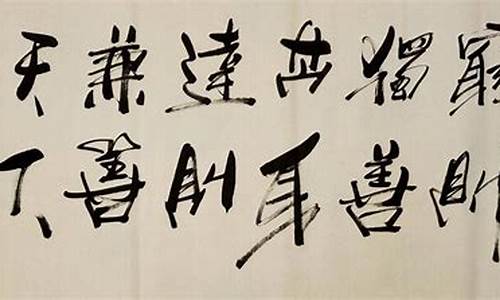 窮則
獨善
其身
達則
兼善
天下